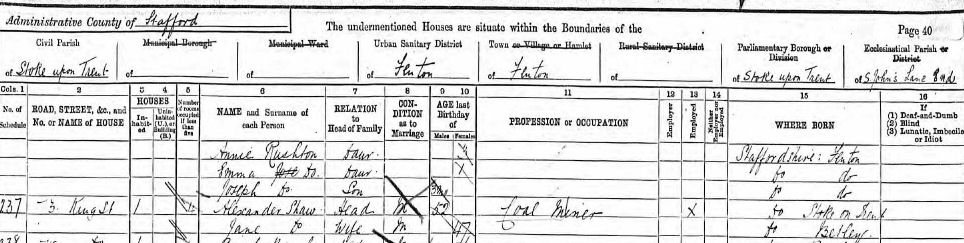 Administrative County of Stafford
The undermentioned Houses are situate within the Boundaries of the
Page 40
Civil Parish Municipal Borough Municipal Ward Urban Sanitary District Town or Village or Hamlet Rural Sanitary District Parliamentary Borough or Division Ecclesiastical Parish or District
of Stoke upon Trent of of of Fenton of Fenton of of Stoke upon Trent of S. John's Lane End
Cols. 1 2 3 4 5 6 7 8 9 10 11 12 13 14 15 16
No. of Schedule ROAD, STREET, &c., and No. or NAME of HOUSE HOUSES Inhabited Uninhabited (U.), or Building (B.) Number of rooms occupied if less than five NAME and Surname of each Person RELATION to Head of Family CONDITION as to Marriage AGE last Birthday of Males Females PROFESSION or OCCUPATION Employer Employed Neither Employer nor Employed WHERE BORN If (1) Deaf-and-Dumb (2) Blind (3) Lunatic, Imbecile or Idiot
Annie Rushton Daur. Staffordshire: Fenton
Emma Do. Daur. do do
Joseph Do. Son do do
237 3 King St 1 Alexander Shaw Head M 52 Coal Miner X do Stoke on Trent
Jane Do Wife M 47 do Betley
238